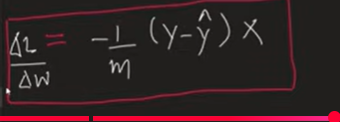 ΔL/ΔW = -1/m (y-ŷ) X